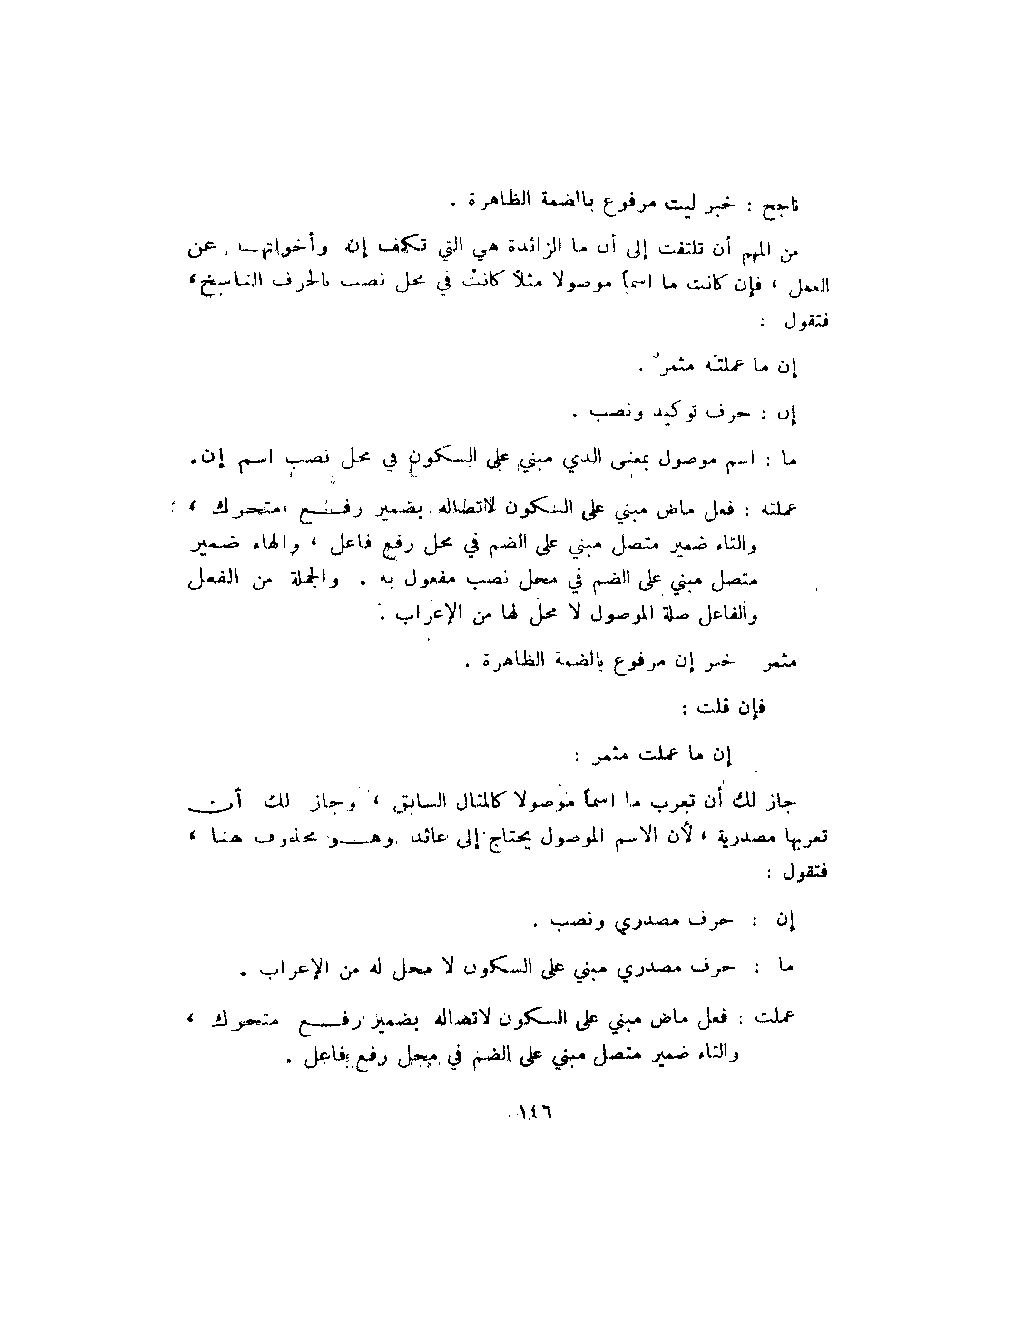 ناجح : خبر ليت مرفوع بالضمة الظاهرة .
من المهم أن تلتفت إلى أن ما الزائدة هي التي تكف إن وأخواتها عن
العمل ، فإن كانت ما اسماً موصولا مثلاً كانت في محل نصب بالحرف الناسخ ،
فتقول :
إن ما عملته مثمرٌ .
إن : حرف توكيد ونصب .
ما : اسم موصول بمعنى الذي مبني على السكون في محل نصب اسم إن .
عملته : فعل ماض مبني على السكون لاتصاله بضمير رفـــع متحرك ،
والتاء ضمير متصل مبني على الضم في محل رفع فاعل ، والهاء ضمير
متصل مبني على الضم في محل نصب مفعول به . والجملة من الفعل
والفاعل صلة الموصول لا محل لها من الإعراب .
مثمر خبر إن مرفوع بالضمة الظاهرة .
فإن قلت :
إن ما عملت مثمر :
جاز لك أن تعرب ما اسماً موصولا كالمثال السابق ، وجاز لك أن
تعربها مصدرية ، لأن الاسم الموصول يحتاج إلى عائد وهـــو محذوف هنا ،
فتقول :
إن : حرف مصدري ونصب .
ما : حرف مصدري مبني على السكون لا محل له من الإعراب .
عملت : فعل ماض مبني على السكون لاتصاله بضمير رفـــع متحرك ،
والتاء ضمير متصل مبني على الضم في محل رفع فاعل .
١٤٦